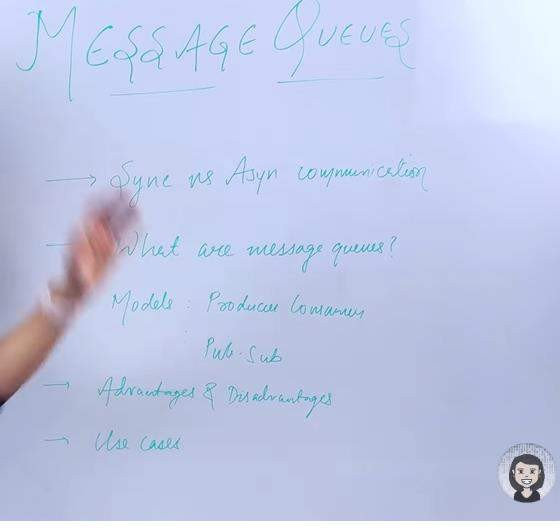 MESSAGE QUEUES
→ Sync vs Asyn communication
→ What are message queues?
Models : Producer Consumer
Pub-Sub
→ Advantages & Disadvantages
→ Use cases